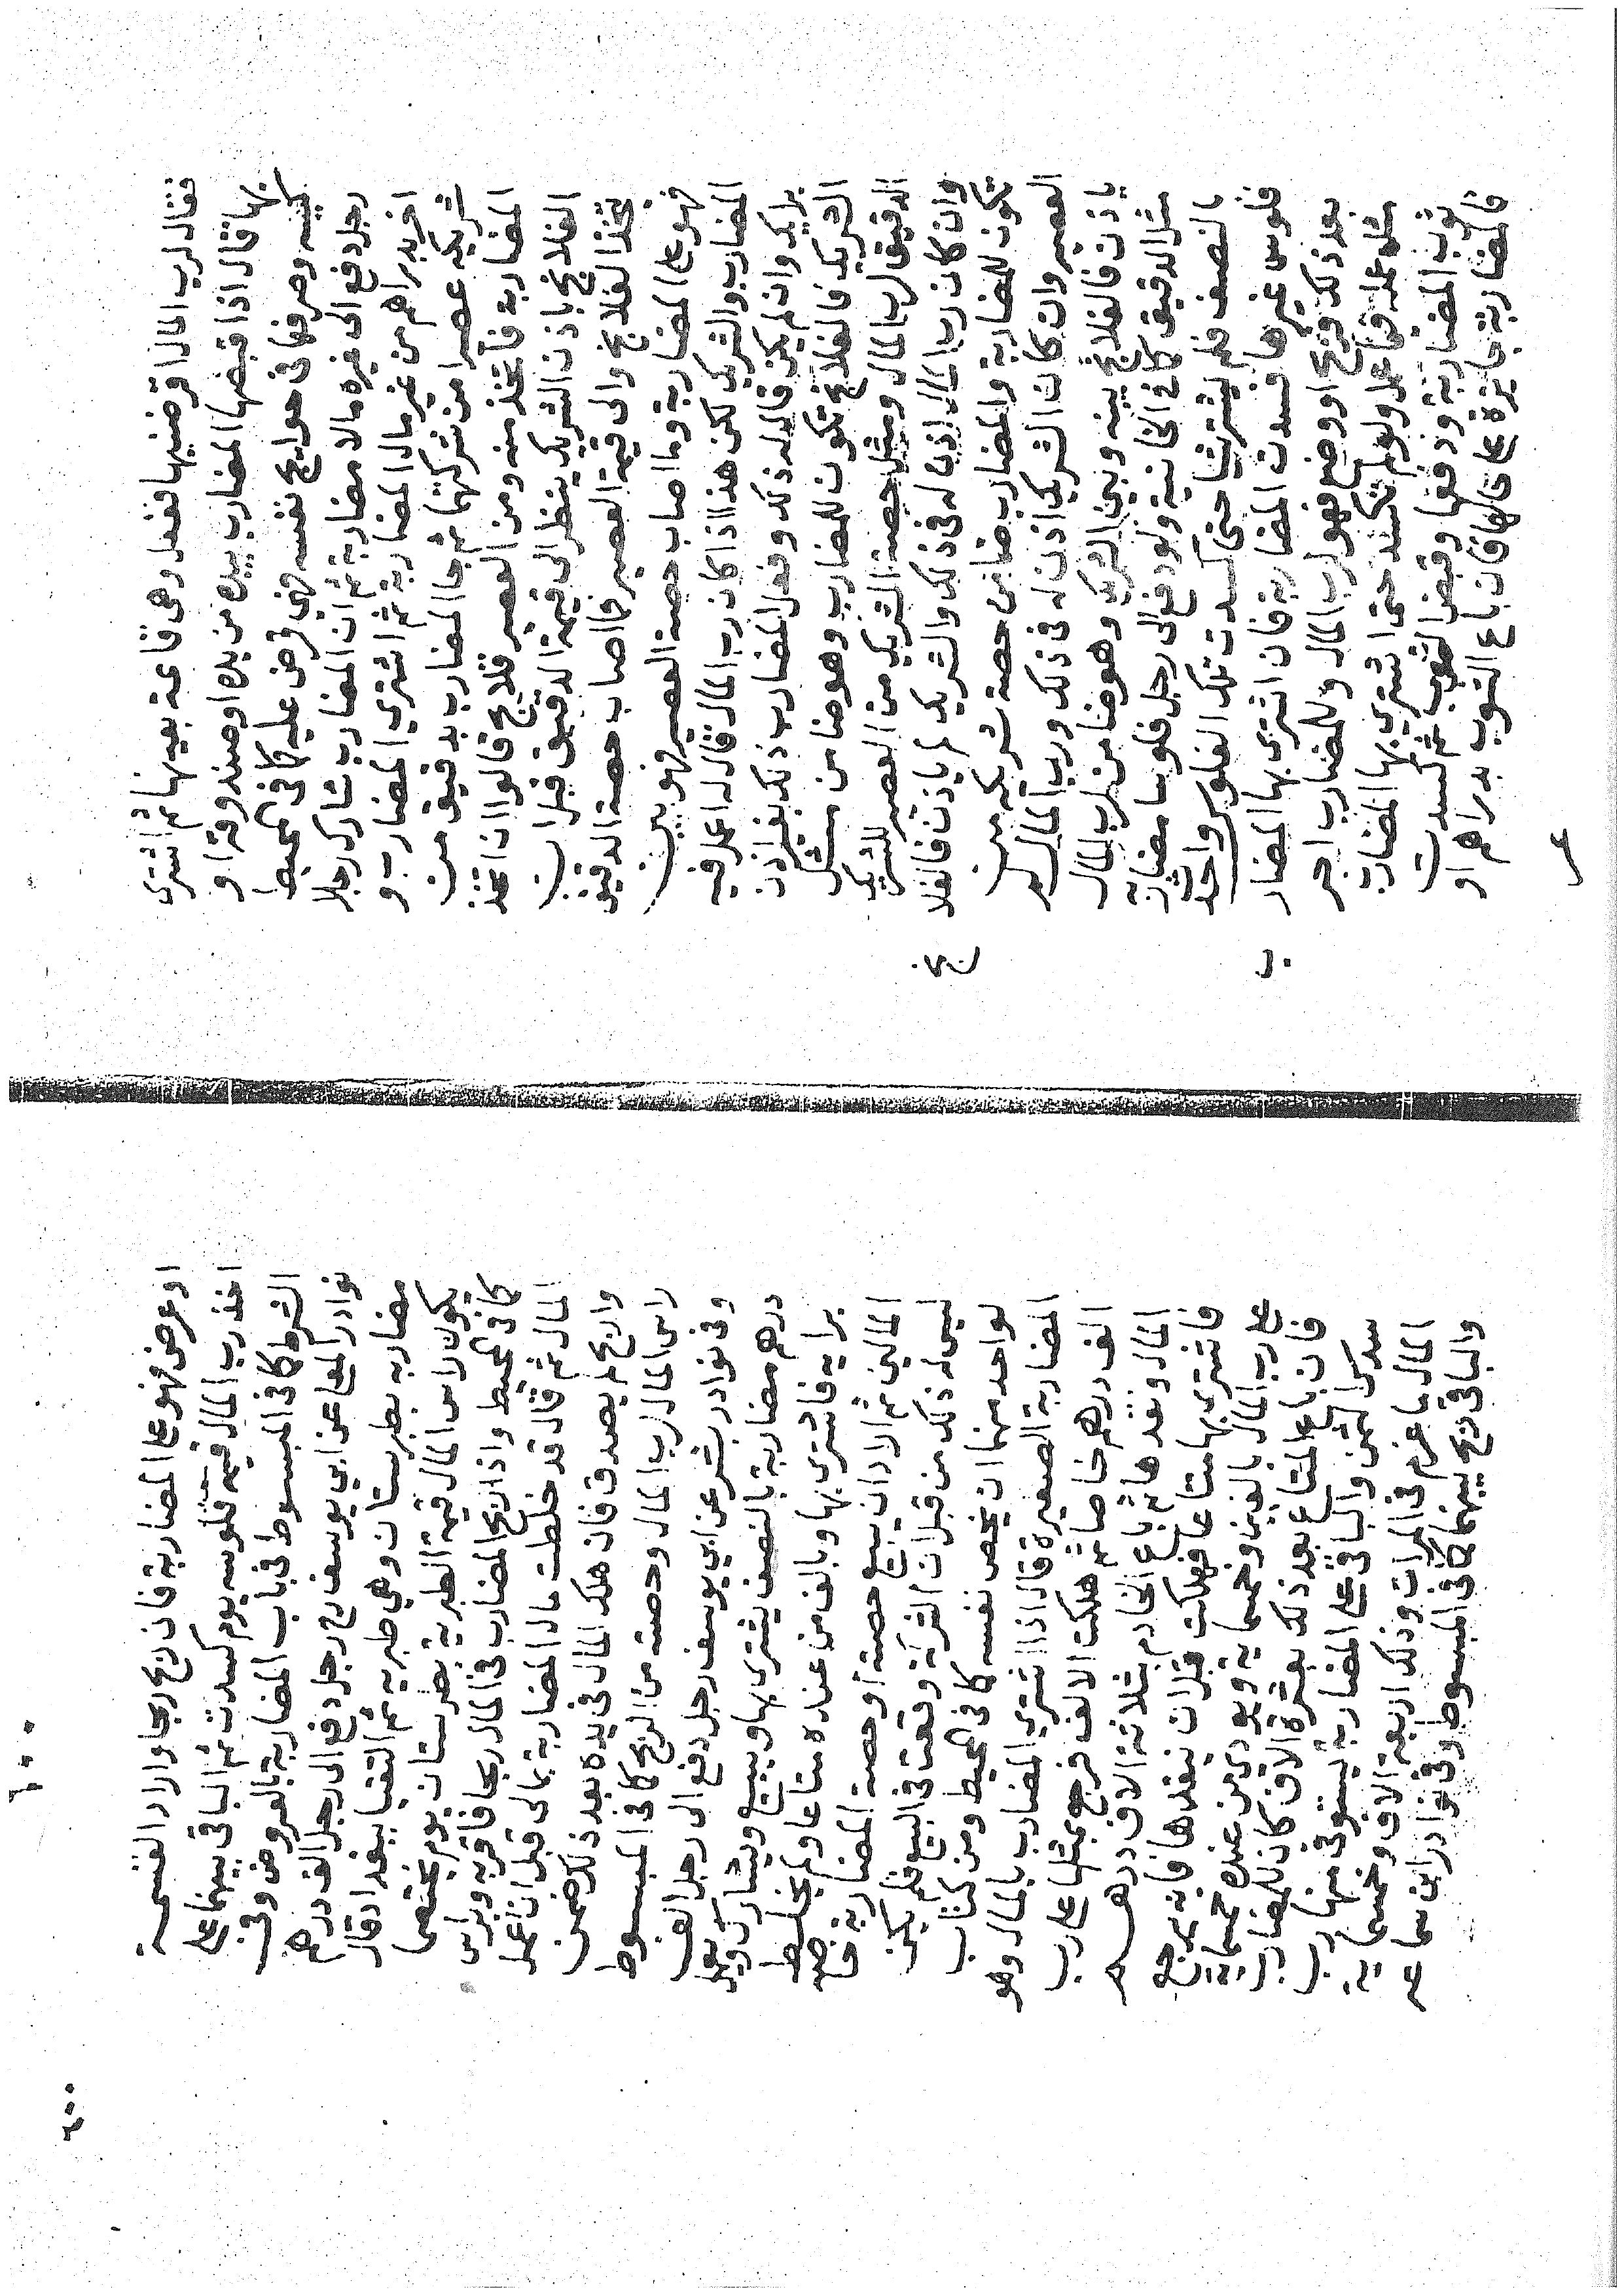 فقال لرب المال اقرضنيها ففعل وهى قائمة بعينها ثم اشترى
بها قال اذا قبضها المضارب بيده من يده او صندوقه او
كيسه وصرفها فى حوايج نفسه فهى قرض عليه كما فى المحيط
رجل دفع الى غيره مالا مضاربة ثم ان المضارب شارك رجلا
اخر بدراهم من غير مال المضاربة ثم اشترى المضارب و
شريكه عصيرا من شركتهما ثم جا المضارب بدقيق من
المضاربة فاتخذ منه ومن العصير فلاتج قالوا ان اتخذ
الفلاتج باذن الشريك ينظر الى قيمة الدقيق قبل ان
يتخذ الفلاتج والى قيمة العصير فما اصاب حصة الدقيق
فهو على المضاربة وما اصاب حصة العصير فهو بين
المضارب والشريك لكن هذا اذا كان رب المال قال له اعمل فيه
برايك وان لم يكن قال له ذلك وفعل المضارب ذلك بغير اذن
الشريك فالفلاتج تكون للمضارب وهو ضامن مثل
الدقيق لرب المال ومثل حصة الشريك من العصير للشريك
وان كان رب المال اذن له فى ذلك والشريك لم ياذن فالفلا
تج
تكون للمضاربة والمضارب ضامن حصة شريكه من
العصير وان كان الشريك اذن له فى ذلك ورب المال لم
ياذن فالفلاتج بينه وبين الشريك وهو ضامن لرب المال
مثل الدقيق كما فى الخانية ولو دفع الى رجل فلوسا مضاربة
بالنصف فلم يشتر شيا حتى كسدت تلك الفلوس واحدث
فلوس غيرها فسدت المضاربة فان اشترى بها المضار
ب
بعد ذلك فربح او وضع فهو لرب المال وللمضارب اجر
مثل عمله فيما عمل ولو لم تكسد حتى اشترى بها المضارب
ثوب المضاربة ودفعها وقبض الثوب ثم كسدت
فالمضاربة جايزة على حالها فان باع الثوب بدراهم او
عر
او عرض فهو على المضاربة فان ربح ربحا وارادا القسمة
اخذ رب المال قيمة فلوسه يوم كسدت ثم الباقى بينهما على
الشرط كما فى المبسوط فى باب المضاربة بالعروض وفى
نوادر المعلى عن ابى يوسف رح رجل دفع الى رجل الف درهم
مضاربه بطبرستان وهى طبريه ثم التقيا ببغداد قال
يكون راس المال قيمة الطبرية بطبرستان يوم يختصما
كما فى المحيط واذا ربح المضارب فى المال ربحا فاقر به وبراس
المال ثم قال قد خلطت مال المضاربة بمالى قبل ان اعمل
واربح لم يصدق فان هلك المال فى يده بعد ذلك ضمن
راس المال لرب المال وحصته من الربح كما فى المبسوط
وفى نوادر بشر عن ابى يوسف رجل دفع الى رجل الف
درهم مضاربة بالنصف يشترى بها ويبيع ويشارك ويعمل
برايه فاشترى بها وبالف من عنده متاعا ولم يخلط
المالين ثم الا اراد ان يبيع حصته او حصة المضاربة خا
صة
ليس له ذلك من قبل ان الشركة وقعت فى البيع فلم يكن
لواحد منهما ان يخص نفسه كما فى المحيط ومن كتاب
المضاربة الصغيرة قال اذا اشترى المضارب بالمال وهو
الف درهم خادما ثم هلكت الالف فرجع بمثلها على رب
المال ونقدها ثم باع الخادم بثلاثة الاف درهم
فاشترى بها متاعا فهلكت قبل ان ينقدها فانه يرجع
على رب المال بالفين وخمسماية ويودى من عنده خمسماية
فان باع المتاع بعد ذلك بعشرة الاف كان للمضارب
سدس الثمن والباقى على المضاربة يستوفى منها رب
المال ما غرم فى المرات وذلك اربعة الاف وخمسماية
والباقى ربح بينهما كما فى المبسوط وفى نوادر ابن سما
عه